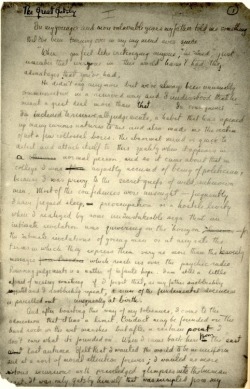 The Great Gatsby
1
In my younger and more vulnerable years my father told me something
that I've been turning over in my mind ever since.
When you feel like criticizing anyone, he said, just
remember that everyone in this world hasn't had the
advantages that you've had.
He didn't say any more but we've always been unusually
communicative in a reserved way and I understood that he
meant a great deal more than that.
reserve all judgements, a habit that has opened
up many curious natures to me and also made me the victim
of not a few bores. The abnormal mind is quick to
detect and attach itself to this quality when it appears in
a normal person and so it came about that in
college I was unjustly accused of being a politician,
because I was privy to the secret griefs of wild, unknown
men. Most of the confidences were unsought — frequently
I have feigned sleep, preoccupation or a hostile levity
when I realized by some unmistakable sign that an
intimate revelation was quivering on the horizon
the intimate revelations of young men or at any rate the
terms in which they express them
Reserving judgements is a matter of infinite hope. I am still a little
afraid of missing something if I forget that, as my father snobbishly
and I snobbishly repeat, a sense of the fundamental decencies
is parcelled out unequally at birth.
And after boasting this way of my tolerance, I come to the
admission that it has a limit. Conduct may be founded on the
hard rock or the wet marshes but after a certain point I
don't care what it's founded on. When I came back from the east
last autumn I felt that I wanted the world to be in uniform
and at a sort of moral attention forever; I wanted no more
riotous excursions with privileged glimpses into the human
heart. It was only Gatsby himself that was exempted from my